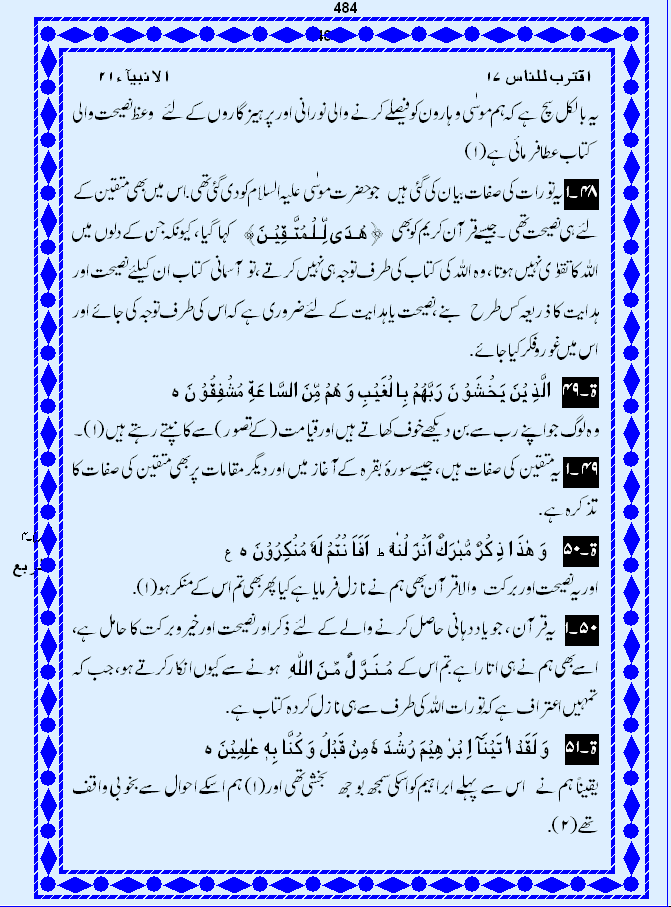 484
اقترب للناس ۱۷
الانبیآء ۲۱
یہ بالکل سچ ہے کہ ہم موسٰی و ہارون کو فیصلے کرنے والی نورانی اور پرہیزگاروں کے لئے وعظ نصیحت والی
کتاب عطا فرمائی ہے (۱)
۴۸۔ا یہ تورات کی صفات بیان کی گئی ہیں جو حضرت موسٰی علیہ السلام کو دی گئی تھی۔ اس میں بھی متقین کے
لئے ہی نصیحت تھی۔ جیسے قرآن کریم کو بھی ﴿ هُدًى لِّلْمُتَّقِيْنَ ﴾ کہا گیا، کیونکہ جن کے دلوں میں
اللہ کا تقوٰی نہیں ہوتا، وہ اللہ کی کتاب کی طرف توجہ ہی نہیں کرتے، تو آسمانی کتاب ان کیلئے نصیحت اور
ہدایت کا ذریعہ کس طرح بنے، نصیحت یا ہدایت کے لئے ضروری ہے کہ اس کی طرف توجہ کی جائے اور
اس میں غور و فکر کیا جائے۔
ۃ۔۴۹ الَّذِيْنَ يَخْشَوْنَ رَبَّهُمْ بِالْغَيْبِ وَ هُمْ مِّنَ السَّاعَةِ مُشْفِقُوْنَ ہ
وہ لوگ جو اپنے رب سے بن دیکھے خوف کھاتے ہیں اور قیامت (کے تصور) سے کانپتے رہتے ہیں (۱)۔
۴۹۔ا یہ متقین کی صفات ہیں، جیسے سورۂ بقرہ کے آغاز میں اور دیگر مقامات پر بھی متقین کی صفات کا
تذکرہ ہے۔
ۃ۔۵۰ وَ هٰذَا ذِكْرٌ مُّبٰرَكٌ اَنْزَلْنٰهُ ط اَفَاَنْتُمْ لَهٗ مُنْكِرُوْنَ ہ ع
اور یہ نصیحت اور برکت والا قرآن بھی ہم نے نازل فرمایا ہے کیا پھر بھی تم اس کے منکر ہو (۱)۔
۵۰۔ا یہ قرآن، جو یاد دہانی حاصل کرنے والے کے لئے ذکر اور نصیحت اور خیر و برکت کا حامل ہے،
اسے بھی ہم نے ہی اتارا ہے تم اس کے مُنَزَّلٌ مِّنَ اللّٰهِ ہونے سے کیوں انکار کرتے ہو، جب کہ
تمہیں اعتراف ہے کہ تورات اللہ کی طرف سے ہی نازل کردہ کتاب ہے۔
ۃ۔۵۱ وَ لَقَدْ اٰتَيْنَآ اِبْرٰهِيْمَ رُشْدَهٗ مِنْ قَبْلُ وَ كُنَّا بِهٖ عٰلِمِيْنَ ہ
یقیناً ہم نے اس سے پہلے ابراہیم کو اسکی سمجھ بوجھ بخشی تھی اور (۱) ہم اسکے احوال سے بخوبی واقف
تھے (۲)۔